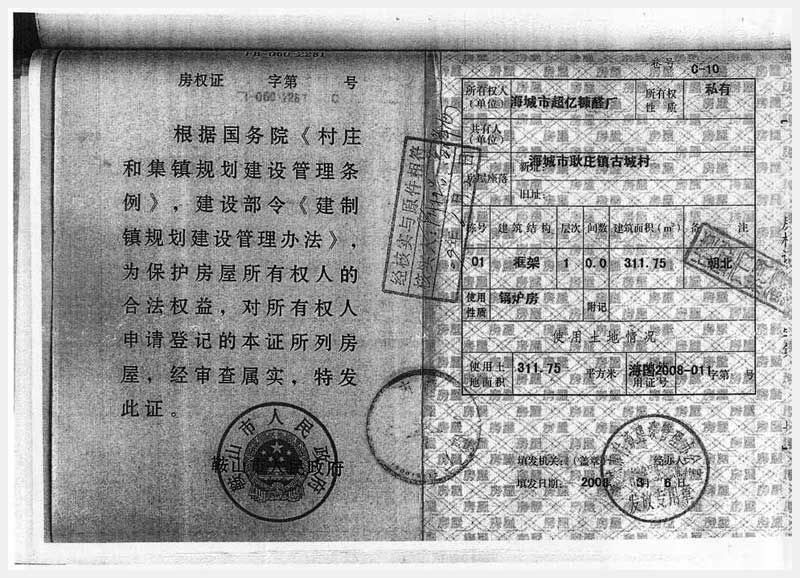 房权证 字第 号
根据国务院《村庄
和集镇规划建设管理条
例》，建设部令《建制
镇规划建设管理办法》，
为保护房屋所有权人的
合法权益，对所有权人
申请登记的本证所列房
屋，经审查属实，特发
此证。
鞍山市人民政府
鞍山市人民政府
经核实与原件相符
核实人：
卷号 C-10
所有权人（单位） 海城市超亿糠醛厂 所有权性质 私有
共有人（单位）
房屋座落 新址: 海城市耿庄镇古城村
旧址:
栋号 建筑结构 层次 间数 建筑面积(m²) 备注
01 框架 1 0.0 311.75 朝北
使用性质 锅炉房 附记
使用土地情况
使用土地面积 311.75 平方米 海国2008-011 用证号 字第 号
填发机关：（盖章） 经办人
填发日期: 2008 3月 6日
发放专用章